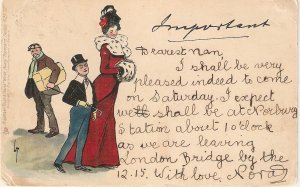 Important
Dearest nan,
I shall be very
pleased indeed to come
on Saturday. I expect
we shall be at Norbury
Station about 1 o'clock
as we are leaving
London Bridge by the
12.15. With love. Nora